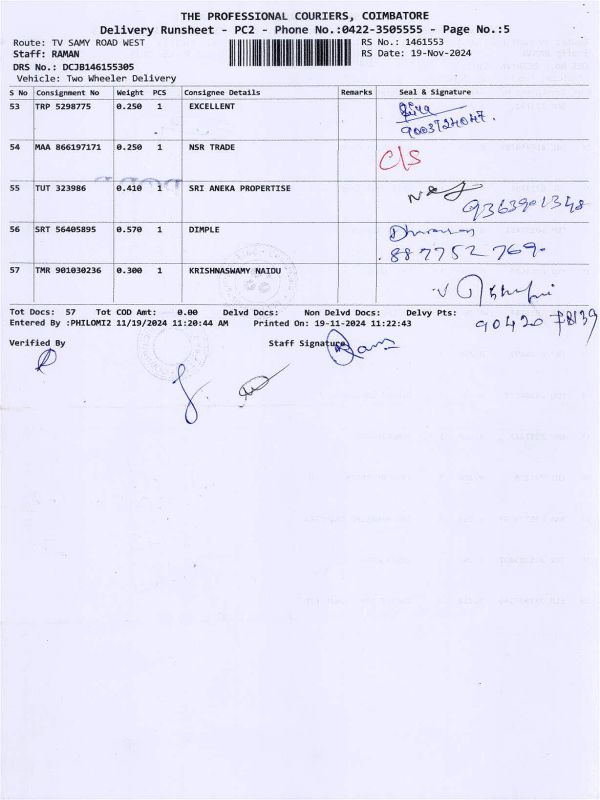 THE PROFESSIONAL COURIERS, COIMBATORE
Delivery Runsheet - PC2 - Phone No.:0422-3505555 - Page No.:5
Route: TV SAMY ROAD WEST RS No.: 1461553
Staff: RAMAN RS Date: 19-Nov-2024
DRS No.: DCJB146155305
Vehicle: Two Wheeler Delivery
S No Consignment No Weight PCS Consignee Details Remarks Seal & Signature
53 TRP 5298775 0.250 1 EXCELLENT
9003724047.
54 MAA 866197171 0.250 1 NSR TRADE C/S
55 TUT 323986 0.410 1 SRI ANEKA PROPERTISE
9363901348
56 SRT 56405895 0.570 1 DIMPLE
887752769.
57 TMR 901030236 0.300 1 KRISHNASWAMY NAIDU
Tot Docs: 57 Tot COD Amt: 0.00 Delvd Docs: Non Delvd Docs: Delvy Pts:
Entered By :PHILOMI2 11/19/2024 11:20:44 AM Printed On: 19-11-2024 11:22:43 90420 78139
Verified By Staff Signature